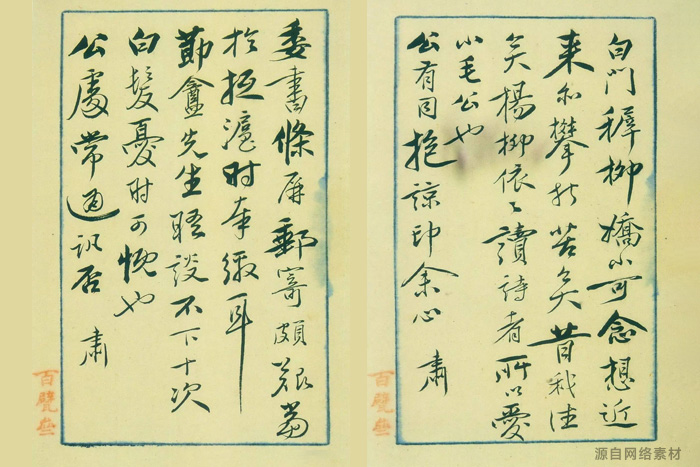 白門穉柳嬌小可念想近
来亦攀折苦矣昔我往
矣楊柳依々讀詩者所以愛
小毛公也
公有同抱諒印余心 肅
百甓
委書條屏郵寄頗艱當
於抵滬時奉繳耳
盦先生晤談不下十次
白髮憂時可慨也
公處常通訊否 肅
百甓
源自网络素材